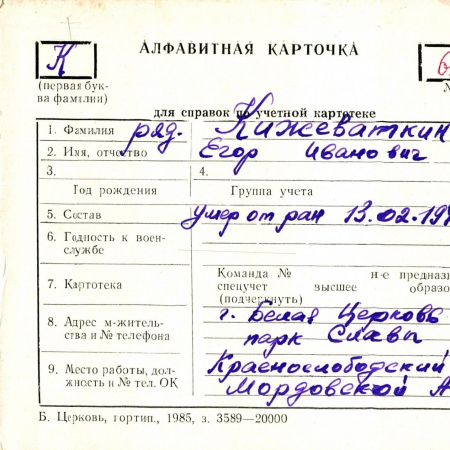 К
АЛФАВИТНАЯ КАРТОЧКА
(первая бук-
ва фамилии)
для справок по учетной картотеке
1. Фамилия ряд. Кижеваткин
2. Имя, отчество Егор Иванович
3. 4.
Год рождения Группа учета
5. Состав умер от ран 13.02.19
6. Годность к воен-
службе
Команда № не предназ
7. Картотека спецучет высшее образо
(подчеркнуть)
8. Адрес м-житель-
ства и № телефона
г. Белая Церковь
парк Славы
9. Место работы, дол-
жность и № тел. ОК
Краснослободский
Мордовской А
Б. Церковь, гортип., 1985, з. 3589—20000